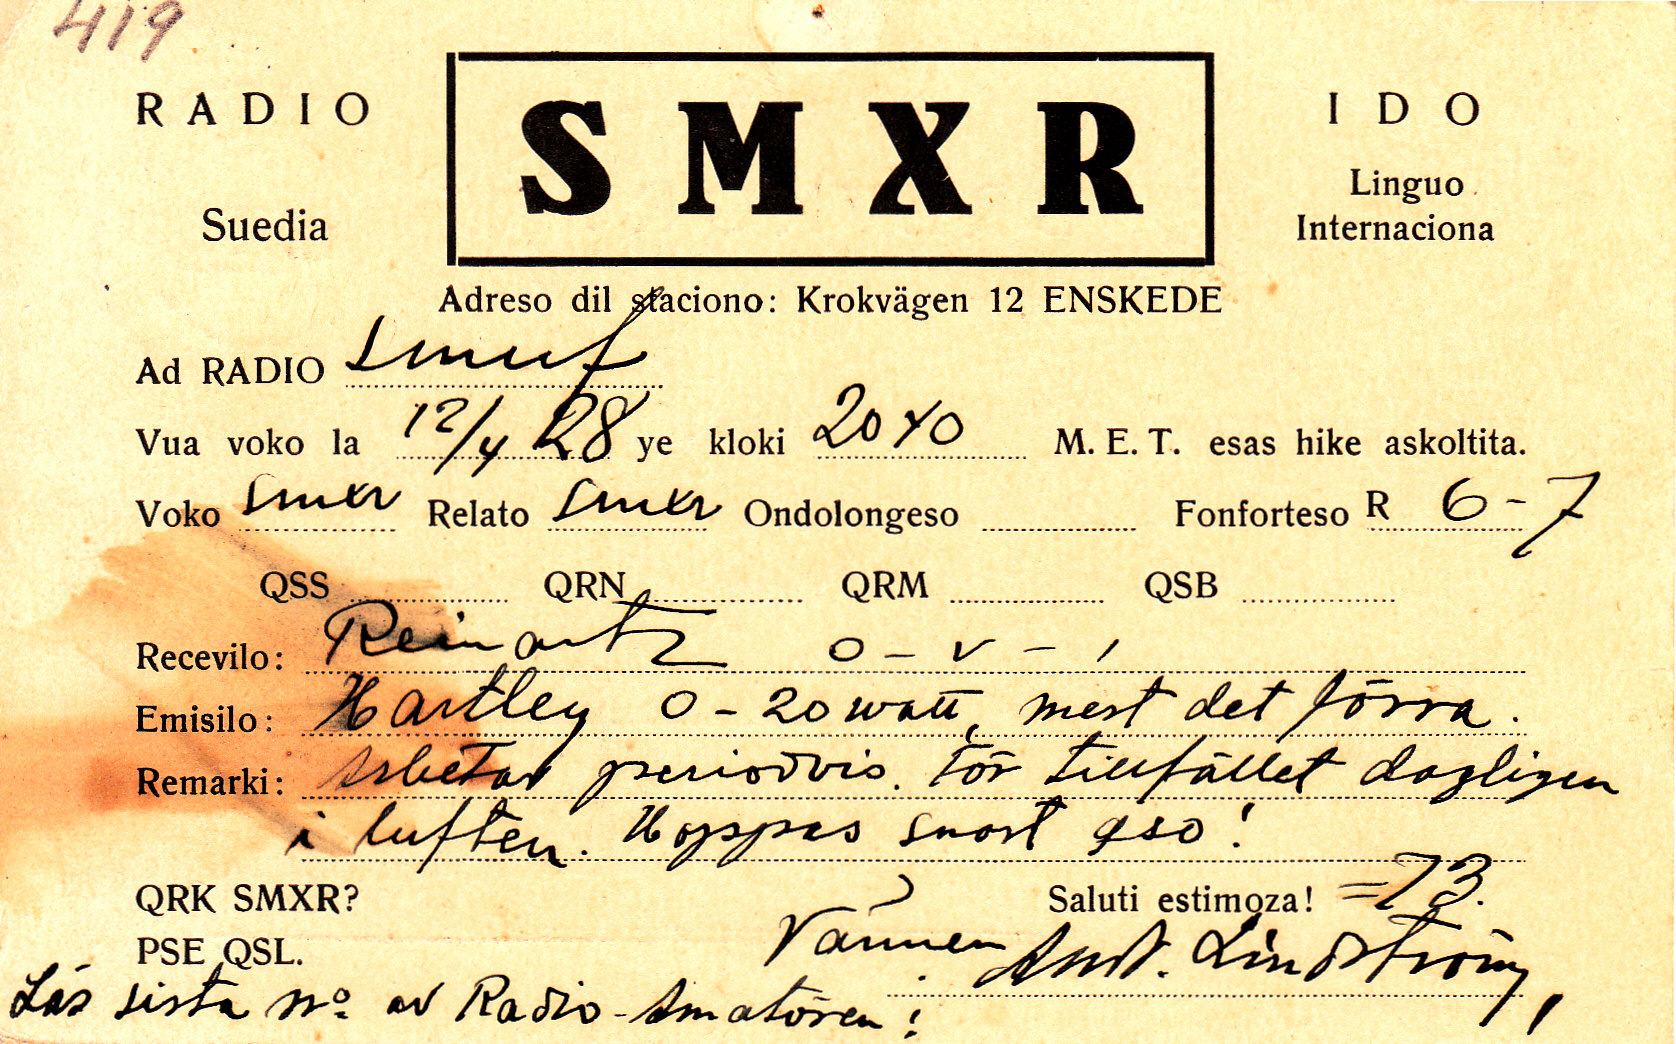 419
RADIO SMXR IDO
Suedia Linguo
Internaciona
Adreso dil staciono: Krokvägen 12 ENSKEDE
Ad RADIO smuf
Vua voko la 12/4 28 ye kloki 2040 M. E. T. esas hike askoltita.
Voko smxr Relato smxr Ondolongeso Fonforteso R 6-7
QSS QRN QRM QSB
Recevilo: Reinartz 0-v-1
Emisilo: Hartley 0-20 watt, mest det förra.
Remarki: Arbetar periodvis. För tillfället dagligen
i luften. Hoppas snart qso!
QRK SMXR? Saluti estimoza! =73.
PSE QSL. Vännen Lindström,
Läs sista No av Radio-Amatören!